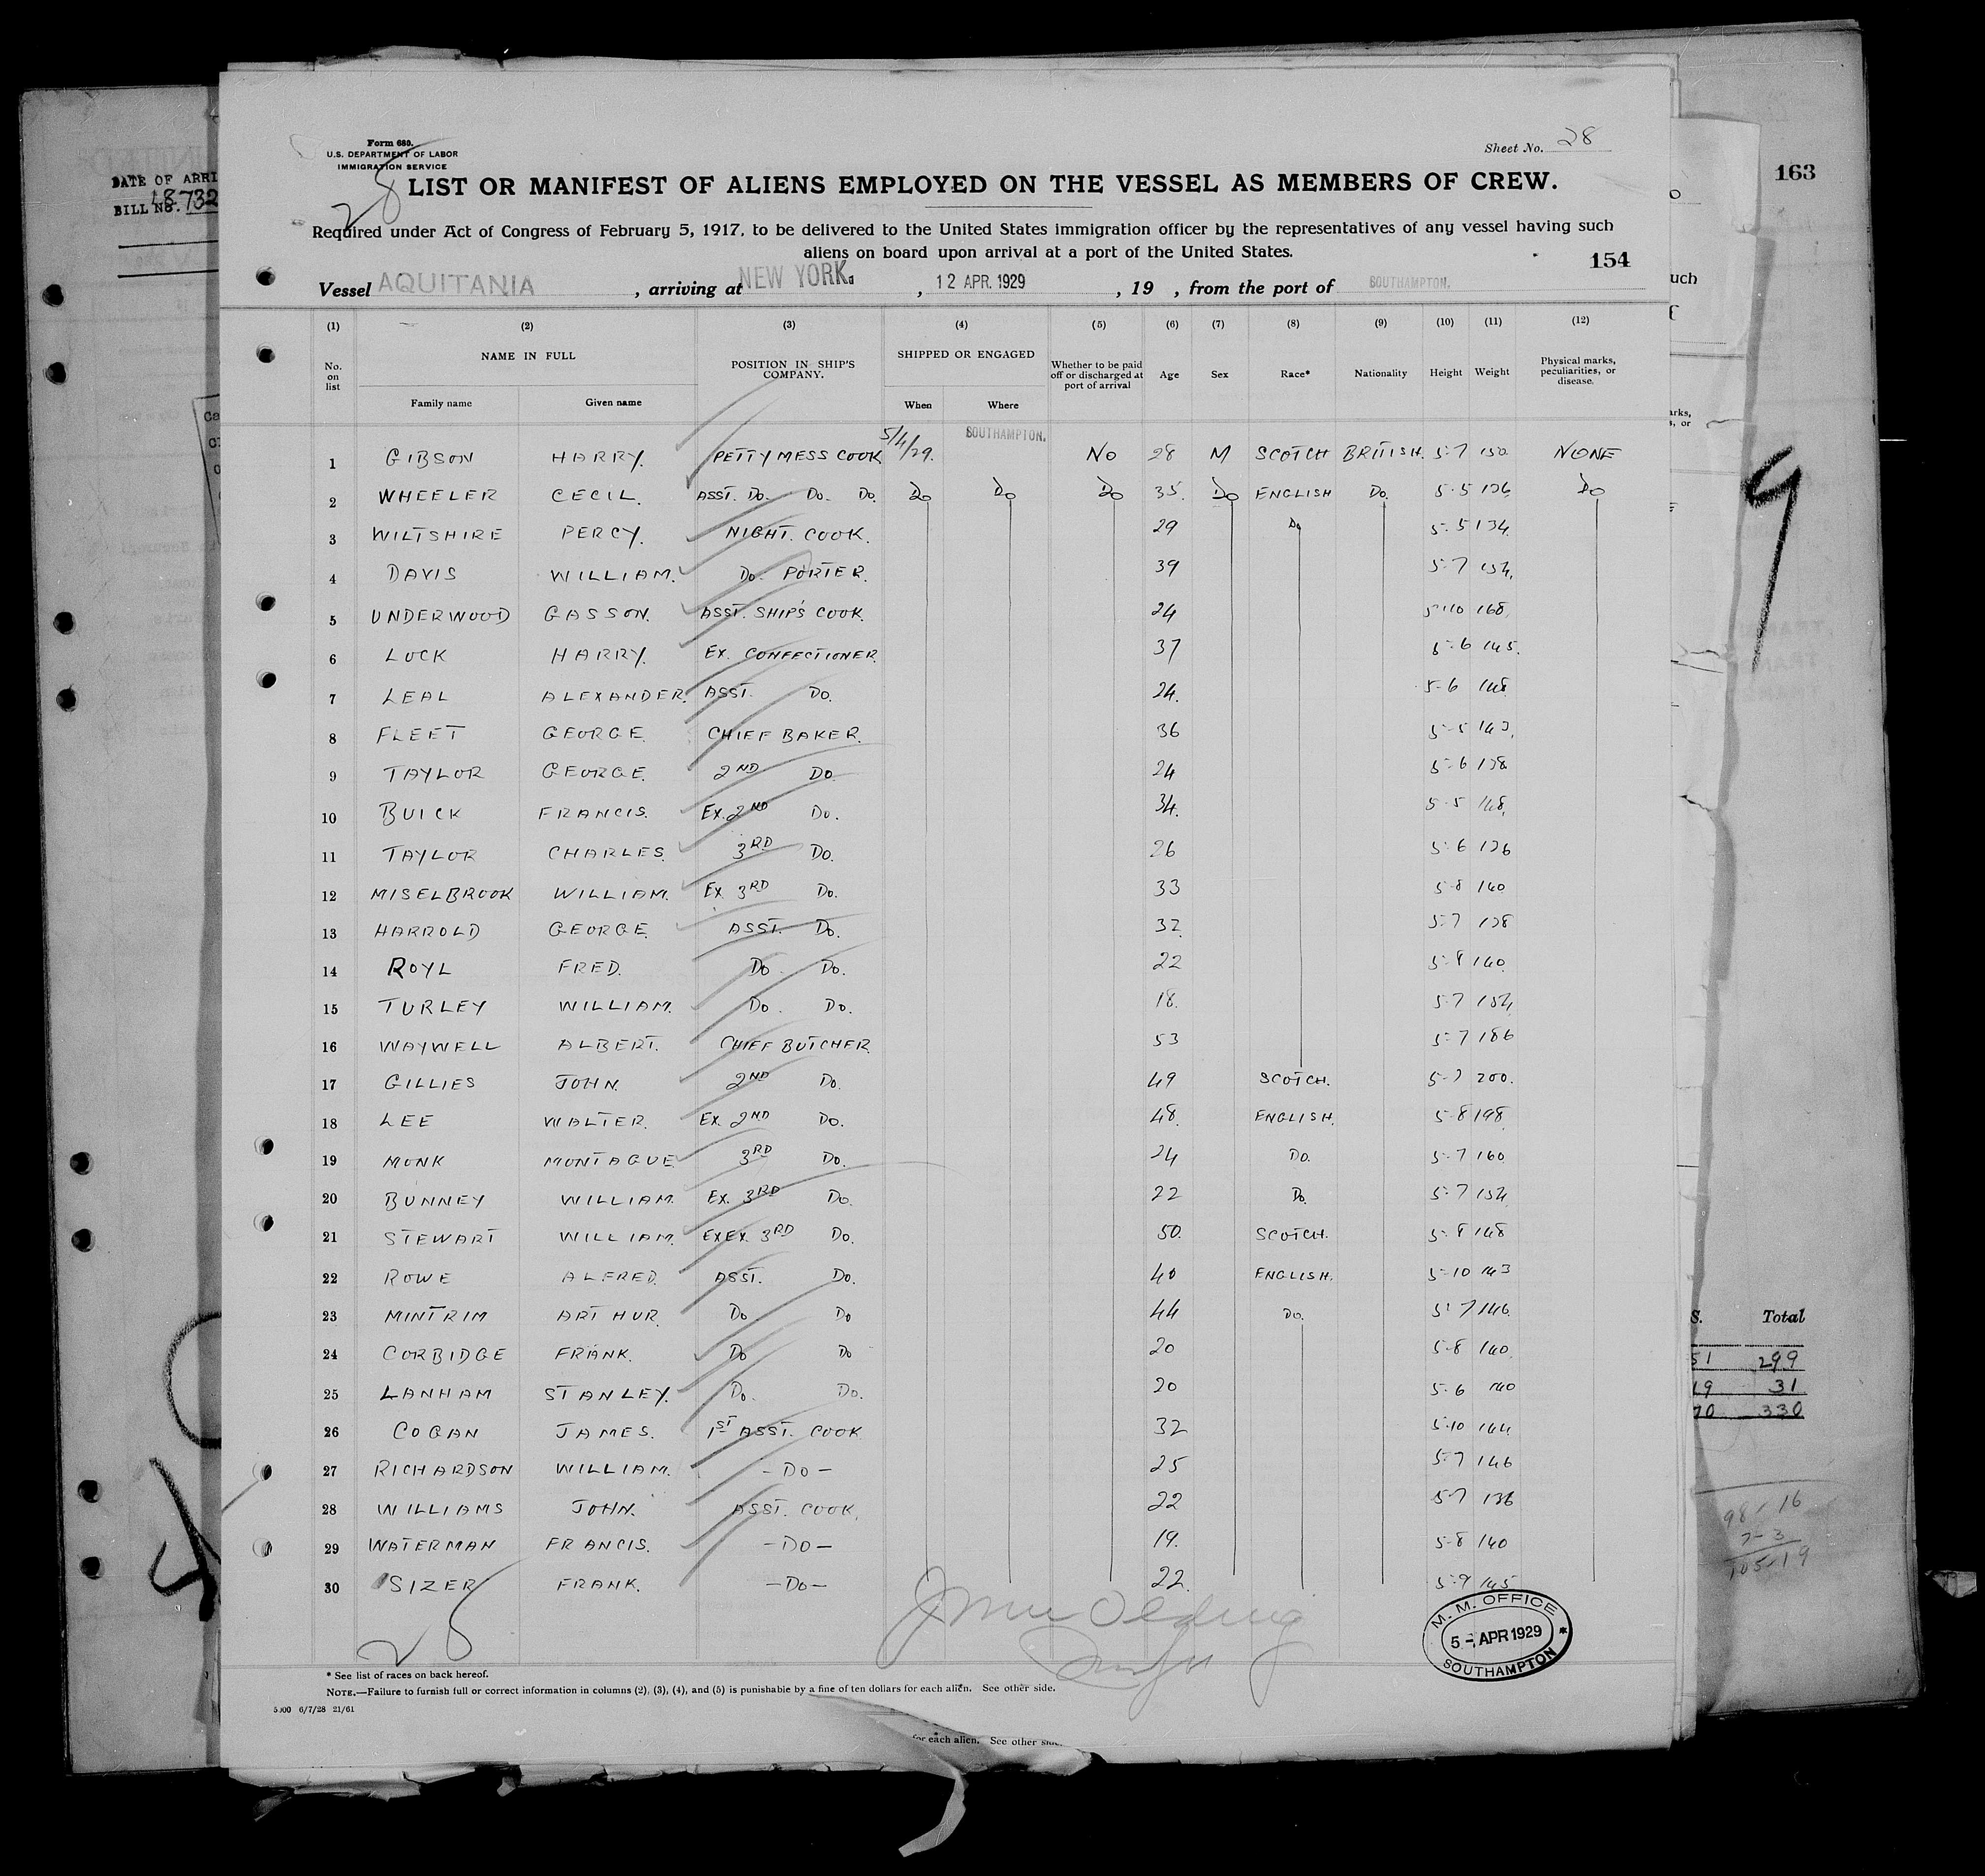 Form 680.
U.S. DEPARTMENT OF LABOR
IMMIGRATION SERVICE
Sheet No. 28
28
LIST OR MANIFEST OF ALIENS EMPLOYED ON THE VESSEL AS MEMBERS OF CREW.
Required under Act of Congress of February 5, 1917, to be delivered to the United States immigration officer by the representatives of any vessel having such
aliens on board upon arrival at a port of the United States.
154
163
DATE OF ARRI
BILL NO.
Vessel AQUITANIA, arriving at NEW YORK, 12 APR. 1929, 19 , from the port of SOUTHAMPTON.
(1) (2) (3) (4) (5) (6) (7) (8) (9) (10) (11) (12)
No. on list NAME IN FULL POSITION IN SHIP'S COMPANY. SHIPPED OR ENGAGED Whether to be paid off or discharged at port of arrival Age Sex Race* Nationality Height Weight Physical marks, peculiarities, or disease.
Family name Given name When Where
1 GIBSON HARRY. PETTY MESS COOK 5/4/29. SOUTHAMPTON. NO 28 M SCOTCH BRITISH. 5-7 150 NONE
2 WHEELER CECIL. ASST. DO. DO. DO. DO DO DO 35. DO ENGLISH DO. 5-5 136 DO
3 WILTSHIRE PERCY. NIGHT. COOK. 29 DO 5-5 134.
4 DAVIS WILLIAM. DO. PORTER. 39 5-7 154.
5 UNDERWOOD GASSON. ASST. SHIP'S COOK. 24 5-10 168.
6 LUCK HARRY. EX. CONFECTIONER. 37 5-6 145.
7 LEAL ALEXANDER. ASST. DO. 24. 5-6 148.
8 FLEET GEORGE. CHIEF BAKER. 36 5-5 143.
9 TAYLOR GEORGE. 2ND DO. 24 5-6 138
10 BUICK FRANCIS. EX. 2ND DO. 34. 5-5 148.
11 TAYLOR CHARLES. 3RD DO. 26 5-6 136
12 MISELBROOK WILLIAM. EX 3RD DO. 33 5-8 140
13 HARROLD GEORGE. ASST. DO. 32. 5-7 138
14 ROYL FRED. DO. DO. 22 5-8 140.
15 TURLEY WILLIAM. DO. DO. 18. 5-7 154
16 WAYWELL ALBERT. CHIEF BUTCHER. 53 5-7 186
17 GILLIES JOHN. 2ND DO. 49 SCOTCH. 5-7 200.
18 LEE WALTER. EX. 2ND DO. 48. ENGLISH. 5-8 198.
19 MONK MONTAGUE 3RD DO. 24 DO. 5-7 160
20 BUNNEY WILLIAM. EX. 3RD DO. 22 DO. 5-7 154
21 STEWART WILLIAM. EXEX. 3RD DO. 50. SCOTCH. 5-8 148
22 ROWE ALFRED. ASST. DO. 40 ENGLISH. 5-10 143
23 MINTRIM ARTHUR. DO DO 44 DO. 5-7 146.
24 CORBIDGE FRANK. DO DO 20 5-8 140.
25 LANHAM STANLEY. DO. DO. 20 5-6 140
26 COGAN JAMES. 1ST ASST. COOK 32 5-10 144
27 RICHARDSON WILLIAM. -DO- 25 5-7 146
28 WILLIAMS JOHN. ASST. COOK. 22 5-7 136
29 WATERMAN FRANCIS. -DO- 19. 5-8 140
30 SIZER FRANK. -DO- 22. 5-9 145
28
M. M. OFFICE
5 - APR 1929
SOUTHAMPTON
* See list of races on back hereof.
NOTE.—Failure to furnish full or correct information in columns (2), (3), (4), and (5) is punishable by a fine of ten dollars for each alien. See other side.
6/7/28 21/61
for each alien. See other side.
uch
S. Total
51 299
19 31
70 330
98-16
7-3
105-19